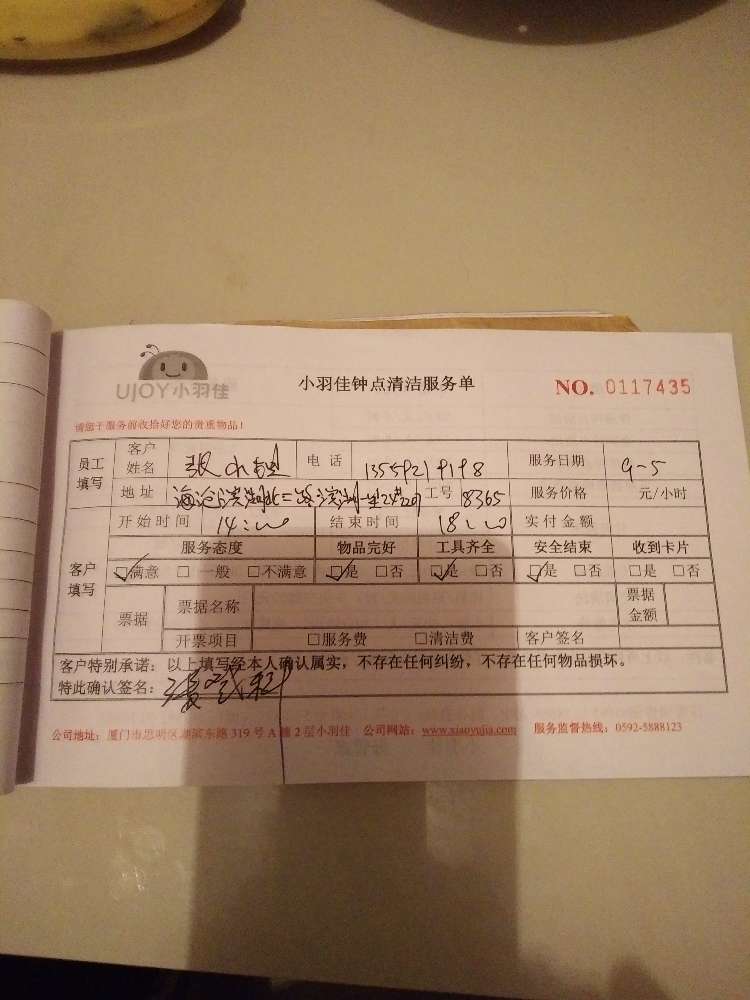 UJOY小羽佳
小羽佳钟点清洁服务单
NO. 0117435
请您于服务前收拾好您的贵重物品！
员工填写 客户姓名 张 电话 服务日期 9-5
地址 海沧 工号 8365 服务价格 元/小时
客户填写 开始时间 14:00 结束时间 18:00 实付金额
服务态度 物品完好 工具齐全 安全结束 收到卡片
☑满意 □一般 □不满意 ☑是 □否 ☑是 □否 ☑是 □否 □是 □否
票据 票据名称 票据金额
开票项目 □服务费 □清洁费 客户签名
客户特别承诺：以上填写经本人确认属实，不存在任何纠纷，不存在任何物品损坏。
特此确认签名：
公司地址：厦门市思明区湖滨东路319号A幢2层小羽佳 公司网站：www.xiaoyujia.com 服务监督热线：0592-5888123